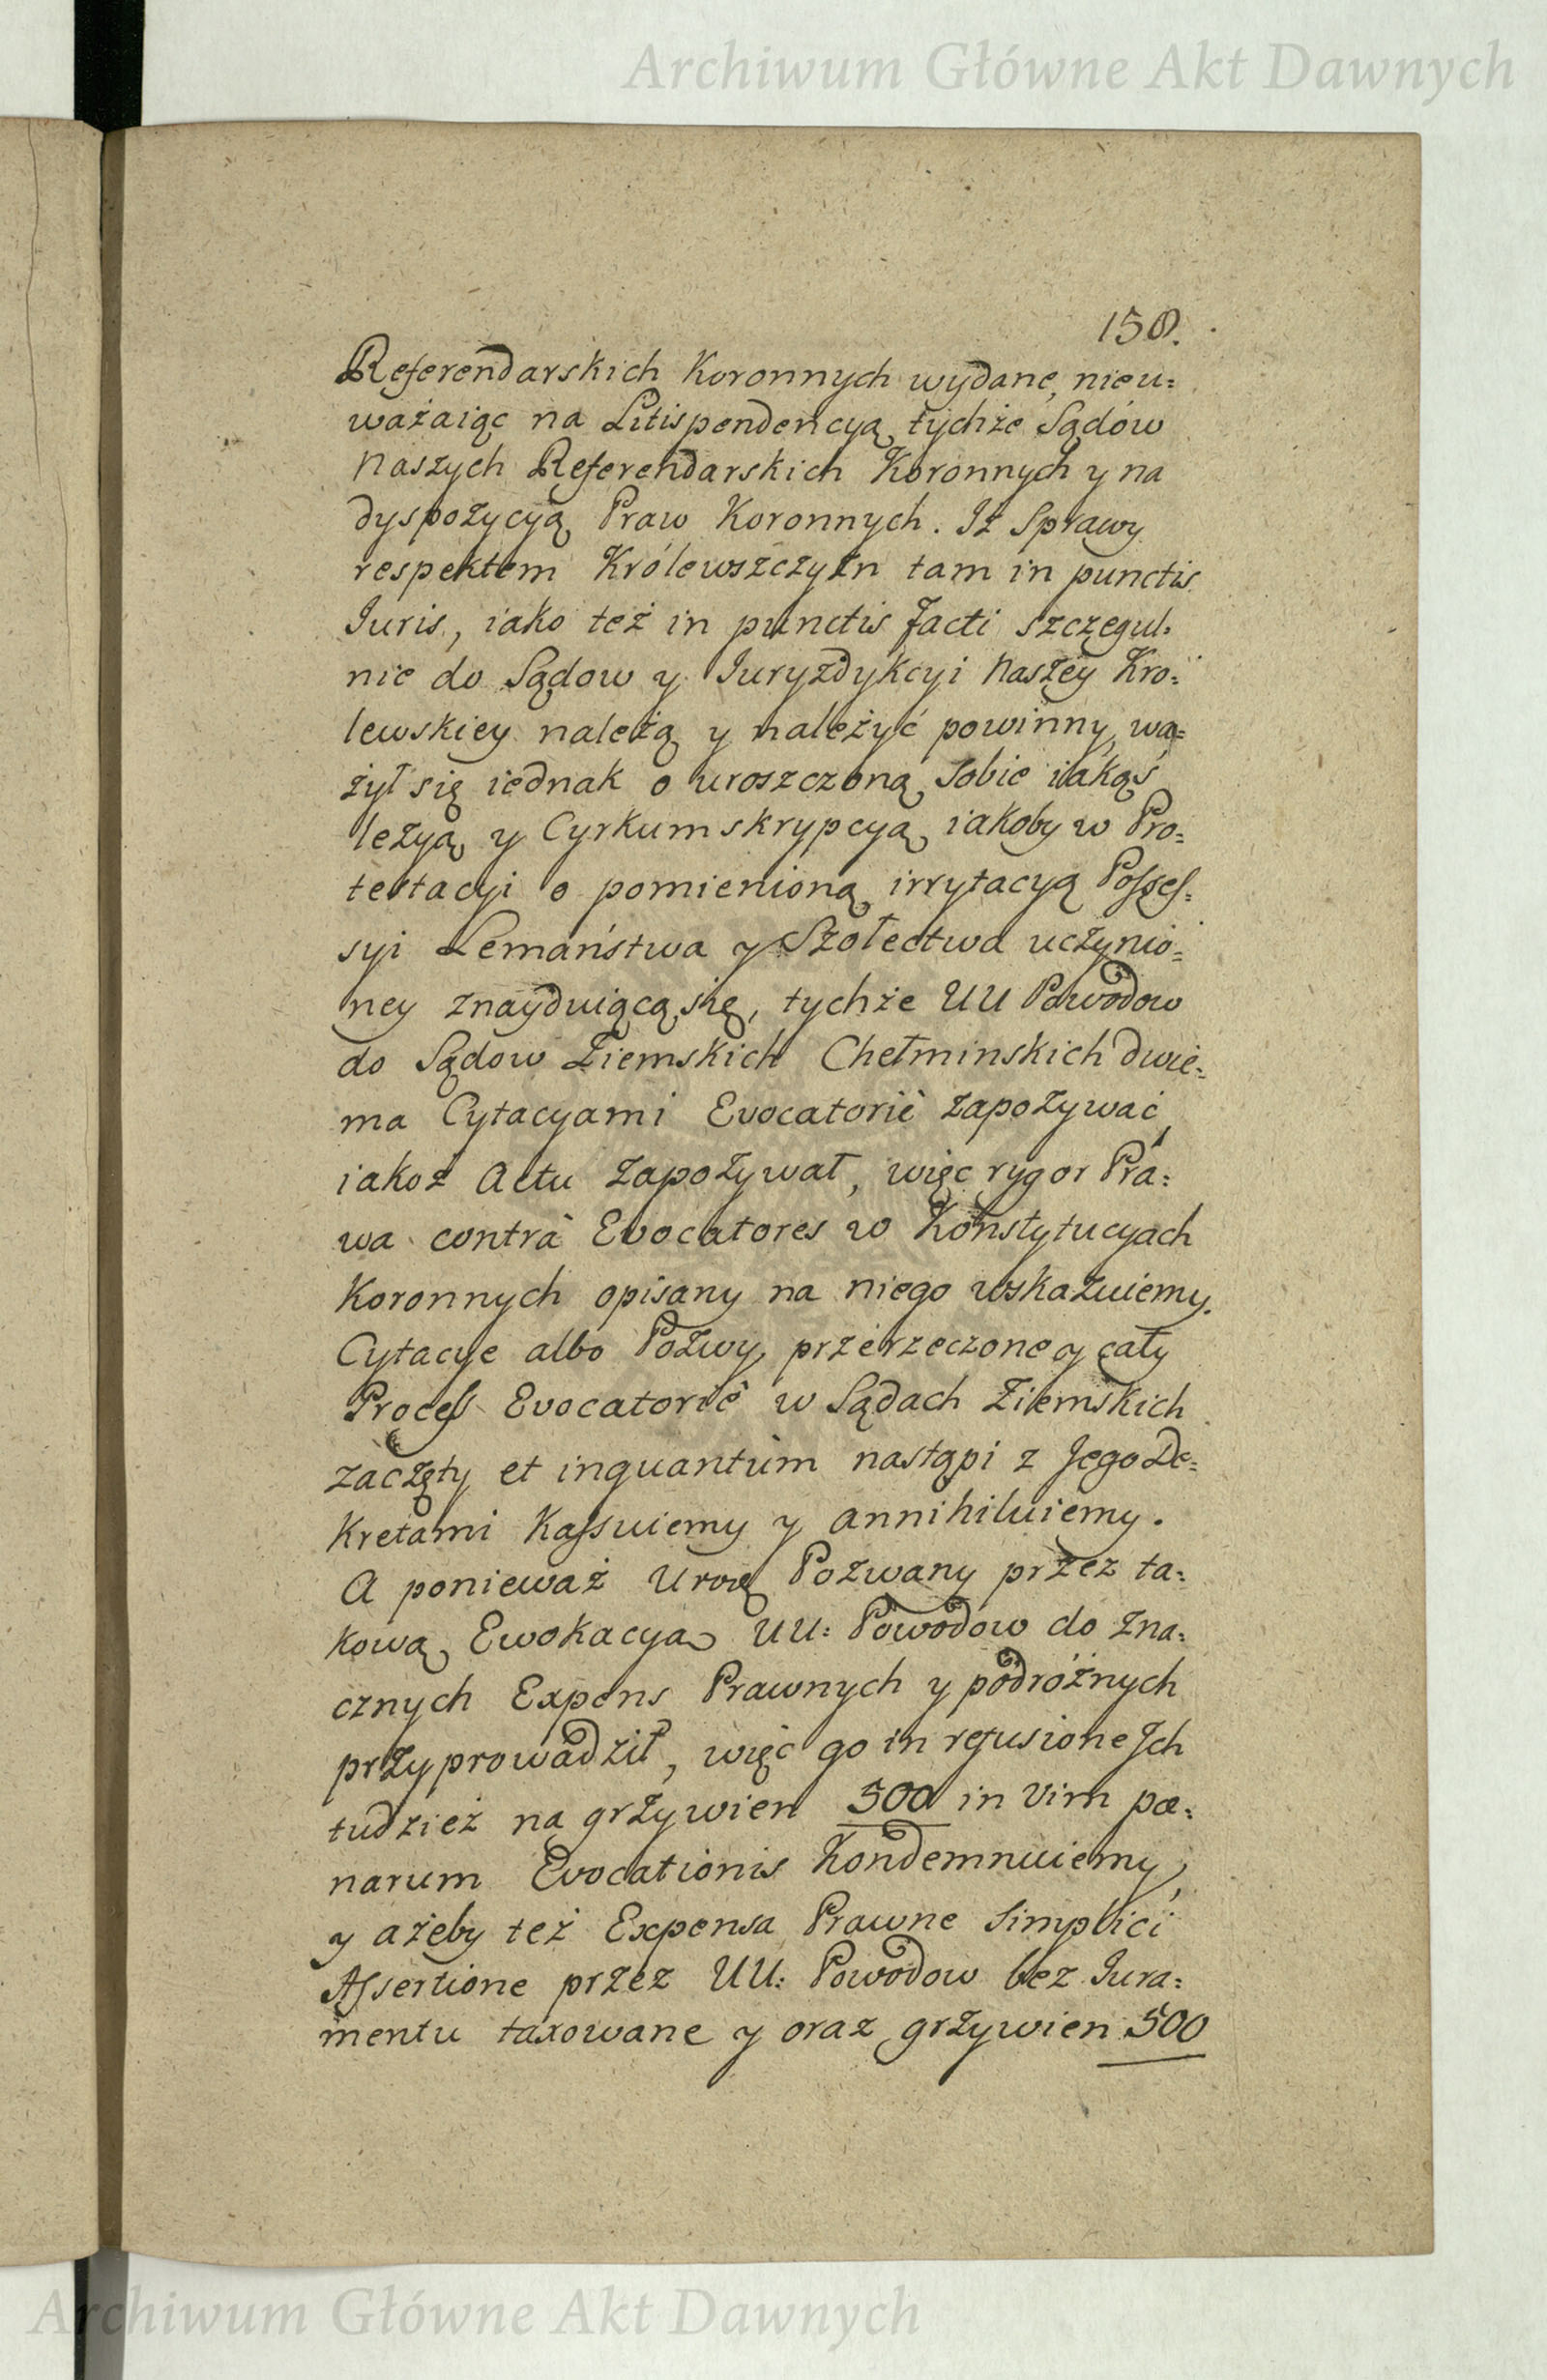 Archiwum Główne Akt Dawnych
158.
Referendarskich Koronnych wydane, nieu=
ważaiąc na Litispendencyą tychże Sądów
Naszych Referendarskich Koronnych y na
dyspozycyą Praw Koronnych. Iż Sprawy
respektem Królewszczyzn tam in punctis
Iuris, iako też in punctis facti szczegul=
nie do Sądow y Iuryzdykcyi Naszey Kro=
lewskiey należą y należyć powinny, wa=
żył się iednak o uroszczoną sobie iakąś
lezyą y Cyrkumskrypcyą iakoby w Pro=
testacyi o pomienioną irrytacyą Possęs=
syi Lemaństwa y Szołectwa uczynio=
ney znayduiącą się, tychże UU Powodow
do Sądow Ziemskich Chełminskich dwie=
ma Cytacyami Evocatoriè zapozywać,
iakoż Actu zapozywał, więc rygor Pra=
wa contrà Evocatores w Konstytucyach
Koronnych opisany na niego wskazuiemy.
Cytacye albo Pozwy przerzeczone y cały
Proces Evocatoriè w Sądach Ziemskich
zaczęty et inquantùm nastąpi z Jego De=
kretami Kassuiemy y annihiluiemy.
A ponieważ Urow Pozwany przez ta=
kową Ewokacyą UU: Powodow do zna=
cznych Expens Prawnych y podróżnych
przyprowadził, więc go in refusione Jch
tudzież na grzywien 500 in vim pæ=
narum Evocationis Kondemnuiemy,
y ażeby też Expensa Prawne Simplici
Assertione przez UU: Powodow bez Iura=
mentu taxowane y oraz grzywien 500
Archiwum Główne Akt Dawnych